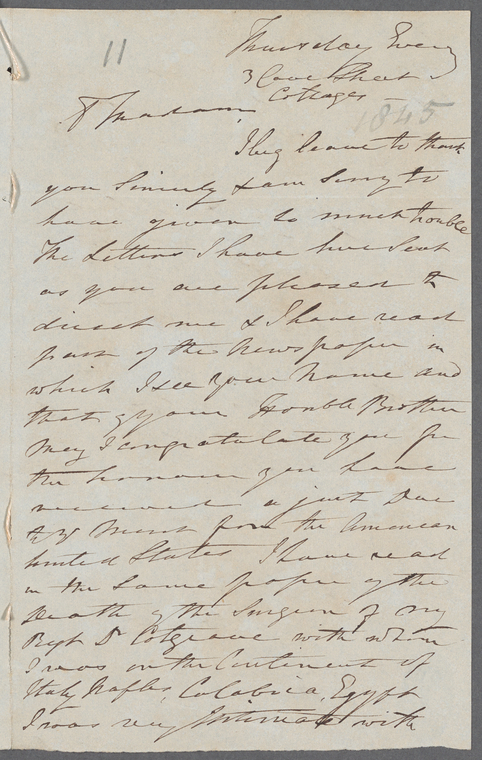 11
Thursday Eveng
3 Cave Street
Cottages
1845
Dr Madam,
I beg leave to thank
you Sincerely & am Sorry to
have given so much trouble
The Letters I have here Sent
as you are pleased to
direct me & I have read
part of the Newspaper in
which I see your Name and
that of your Honble Brother
May I congratulate you for
the honour you have
received a just Due
to yr Merit from the American
United States I have read
in the Same paper of the
Death of the Surgeon of my
Regt Dr Colgrave with whom
I was on the Continent of
Italy Naples, Calabria, Egypt
I was very Intimate with